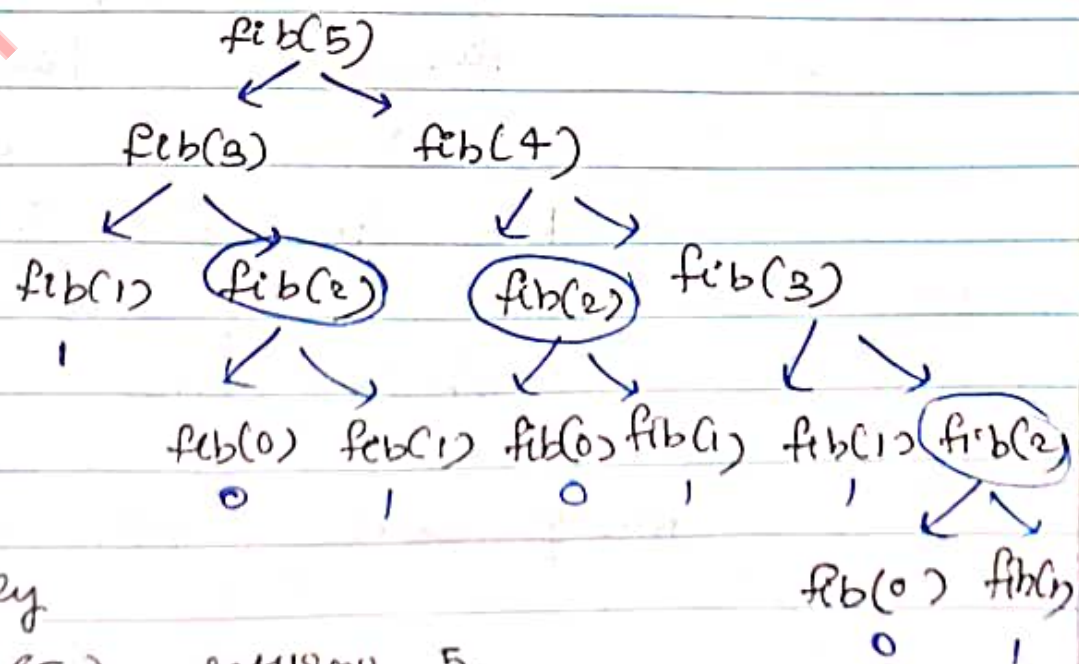 fib(5)
fib(3) fib(4)
fib(1) fib(2) fib(2) fib(3)
1
fib(0) fib(1) fib(0) fib(1) fib(1) fib(2)
0 1 0 1 1
fib(0) fib(1)
0 1
5